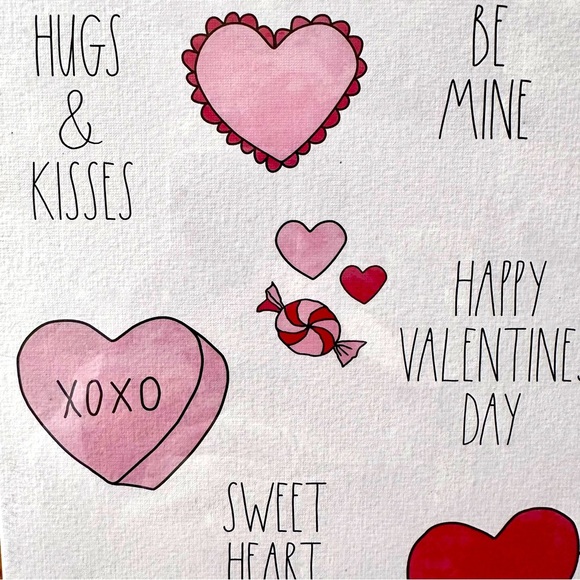 HUGS
&
KISSES
BE
MINE
HAPPY
VALENTINES
DAY
XOXO
SWEET
HEART